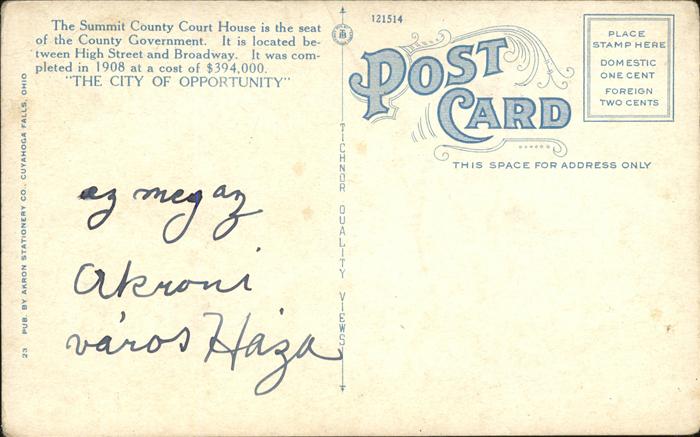 The Summit County Court House is the seat
of the County Government. It is located be-
tween High Street and Broadway. It was com-
pleted in 1908 at a cost of $394,000.
"THE CITY OF OPPORTUNITY"
23 PUB. BY AKRON STATIONERY CO., CUYAHOGA FALLS, OHIO
ez meg az
Akroni
város Háza
TICHNOR QUALITY VIEWS
121514
POST
CARD
PLACE
STAMP HERE
DOMESTIC
ONE CENT
FOREIGN
TWO CENTS
THIS SPACE FOR ADDRESS ONLY